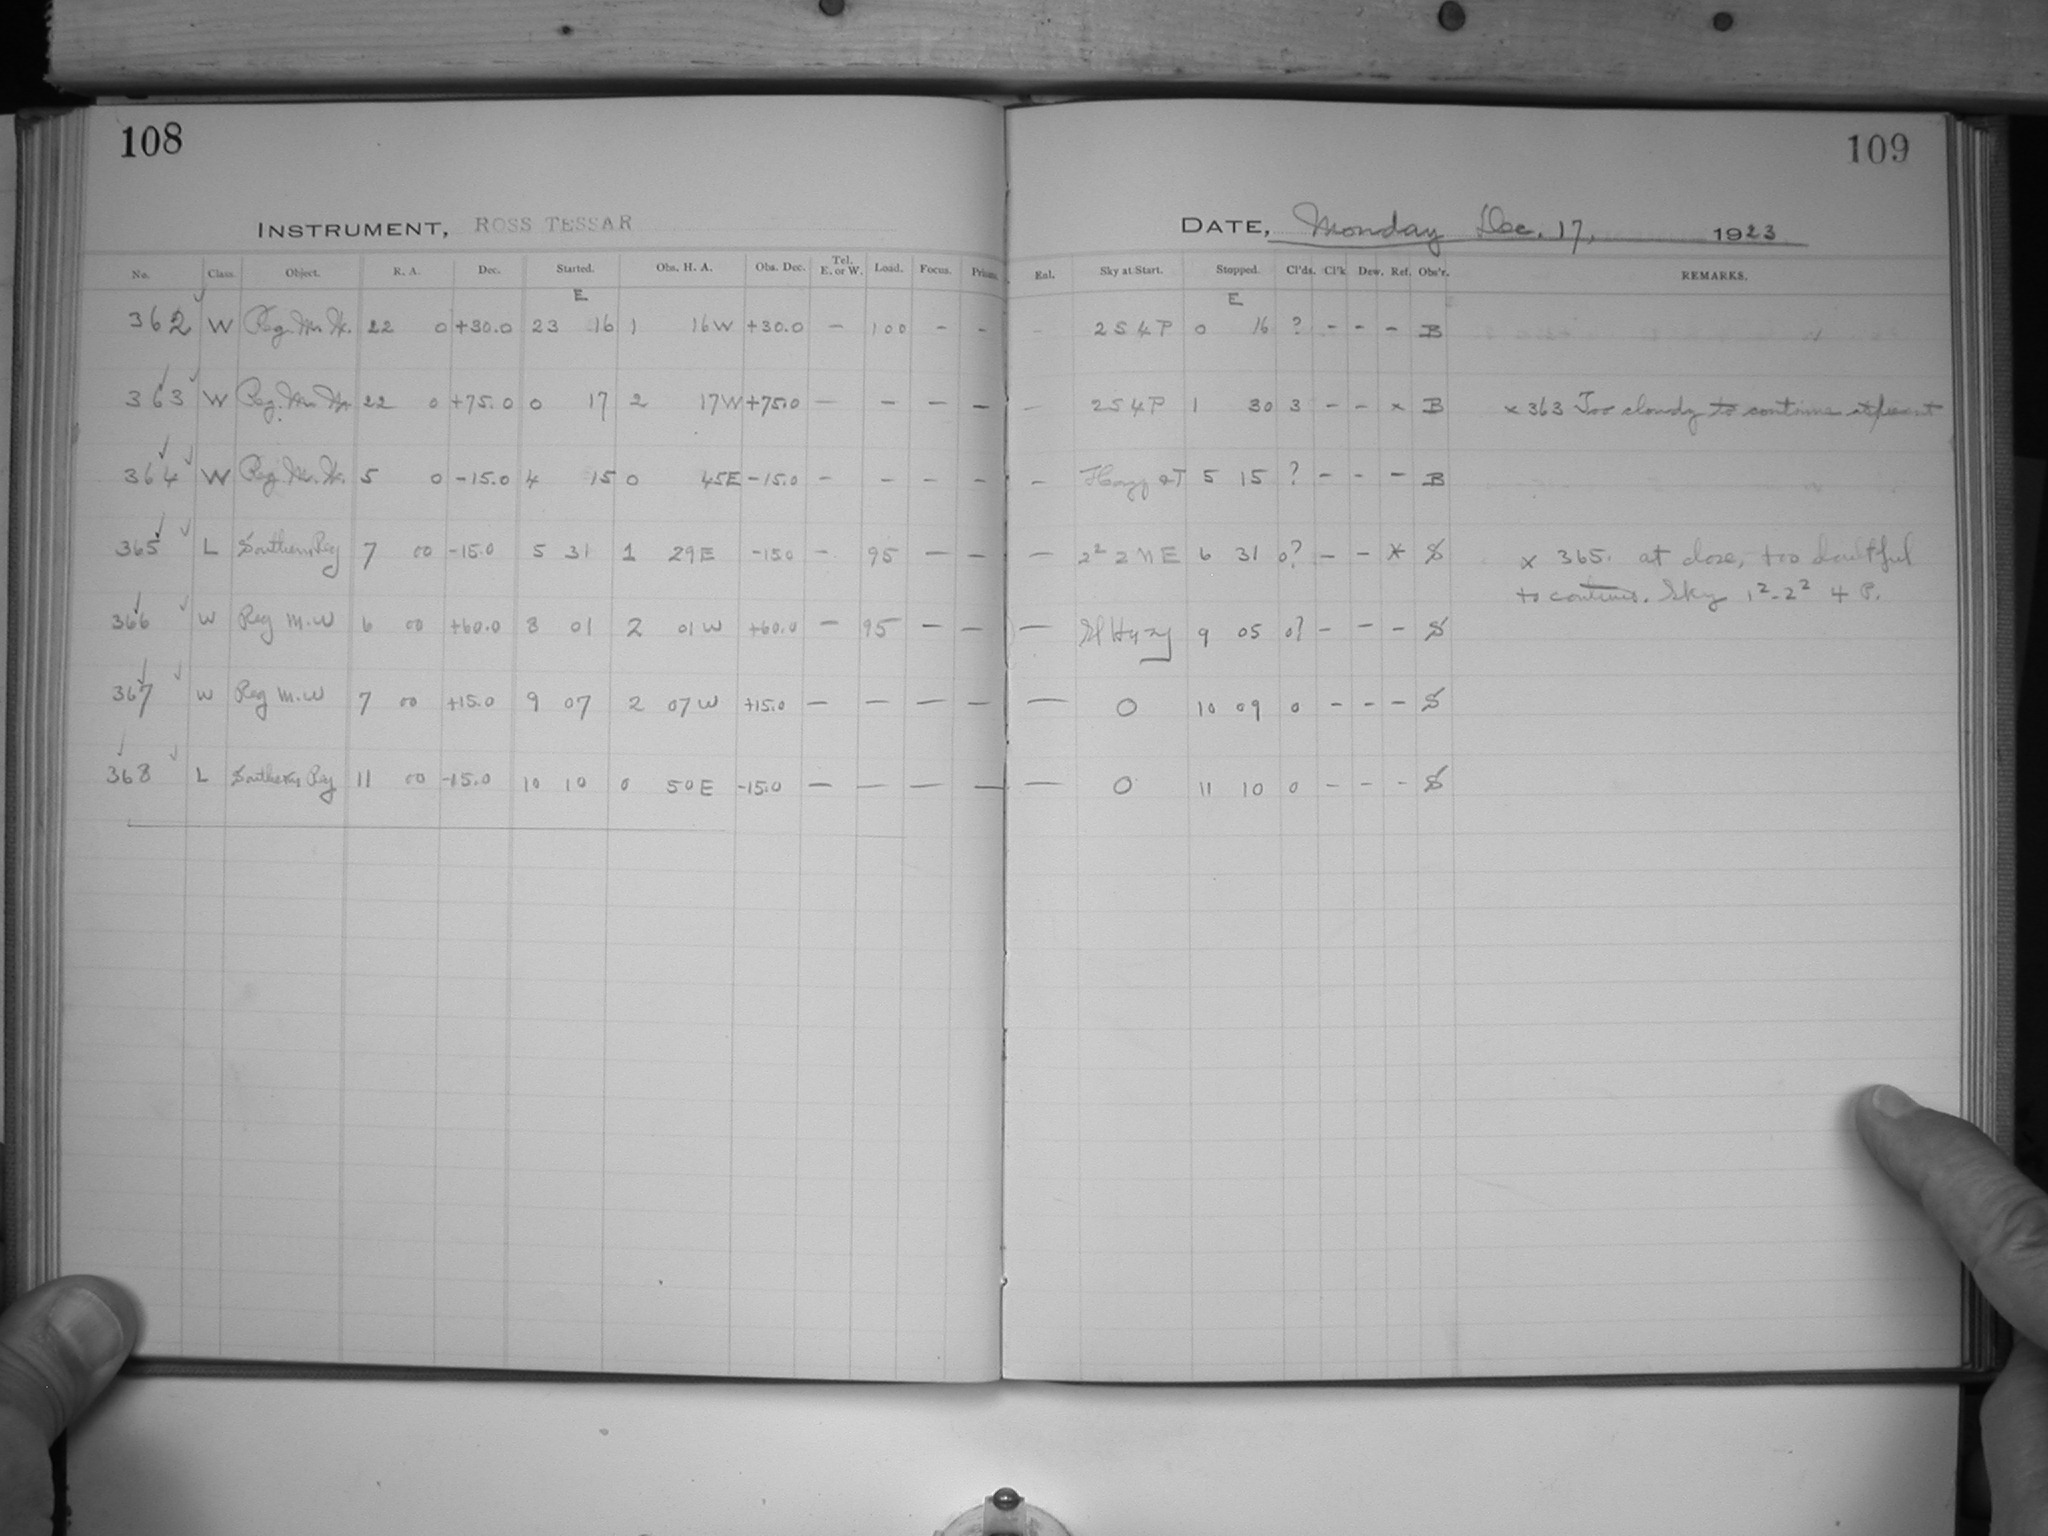 108
109
INSTRUMENT, ROSS TESSAR
DATE, Monday Dec. 17, 1923
No. Class. Object. R. A. Dec. Started. Obs. H. A. Obs. Dec. Tel. E. or W. Load. Focus. Prisms. Enl. Sky at Start. Stopped. Cl'ds. Cl'k Dew. Ref. Obs'r. REMARKS.
E E
362 W Reg. M. W. 22 0 +30.0 23 16 1 16W +30.0 – 100 – – – 2S4P 0 16 ? – – – B
363 W Reg. M. W. 22 0 +75.0 0 17 2 17W +75.0 – – – – – 2S4P 1 30 3 – – x B x 363 Too cloudy to continue at present
364 W Reg. M. W. 5 0 -15.0 4 15 0 45E -15.0 – – – – – 5 15 ? – – – B
365 L Southern Reg 7 00 -15.0 5 31 1 29E -15.0 – 95 – – – 2² 2 N E 6 31 0? – – x S x 365. at close, too doubtful
to continue. Sky 1²-2² 4 P.
366 W Reg M.W 6 00 +60.0 8 01 2 01W +60.0 – 95 – – – Sl Hazy 9 05 0? – – – S
367 W Reg M.W 7 00 +15.0 9 07 2 07W +15.0 – – – – – 0 10 09 0 – – – S
368 L Southern Reg 11 00 -15.0 10 10 0 50E -15.0 – – – – – 0 11 10 0 – – – S